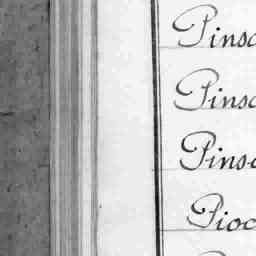 Pinsc
Pinsc
Pinsc
Pioc